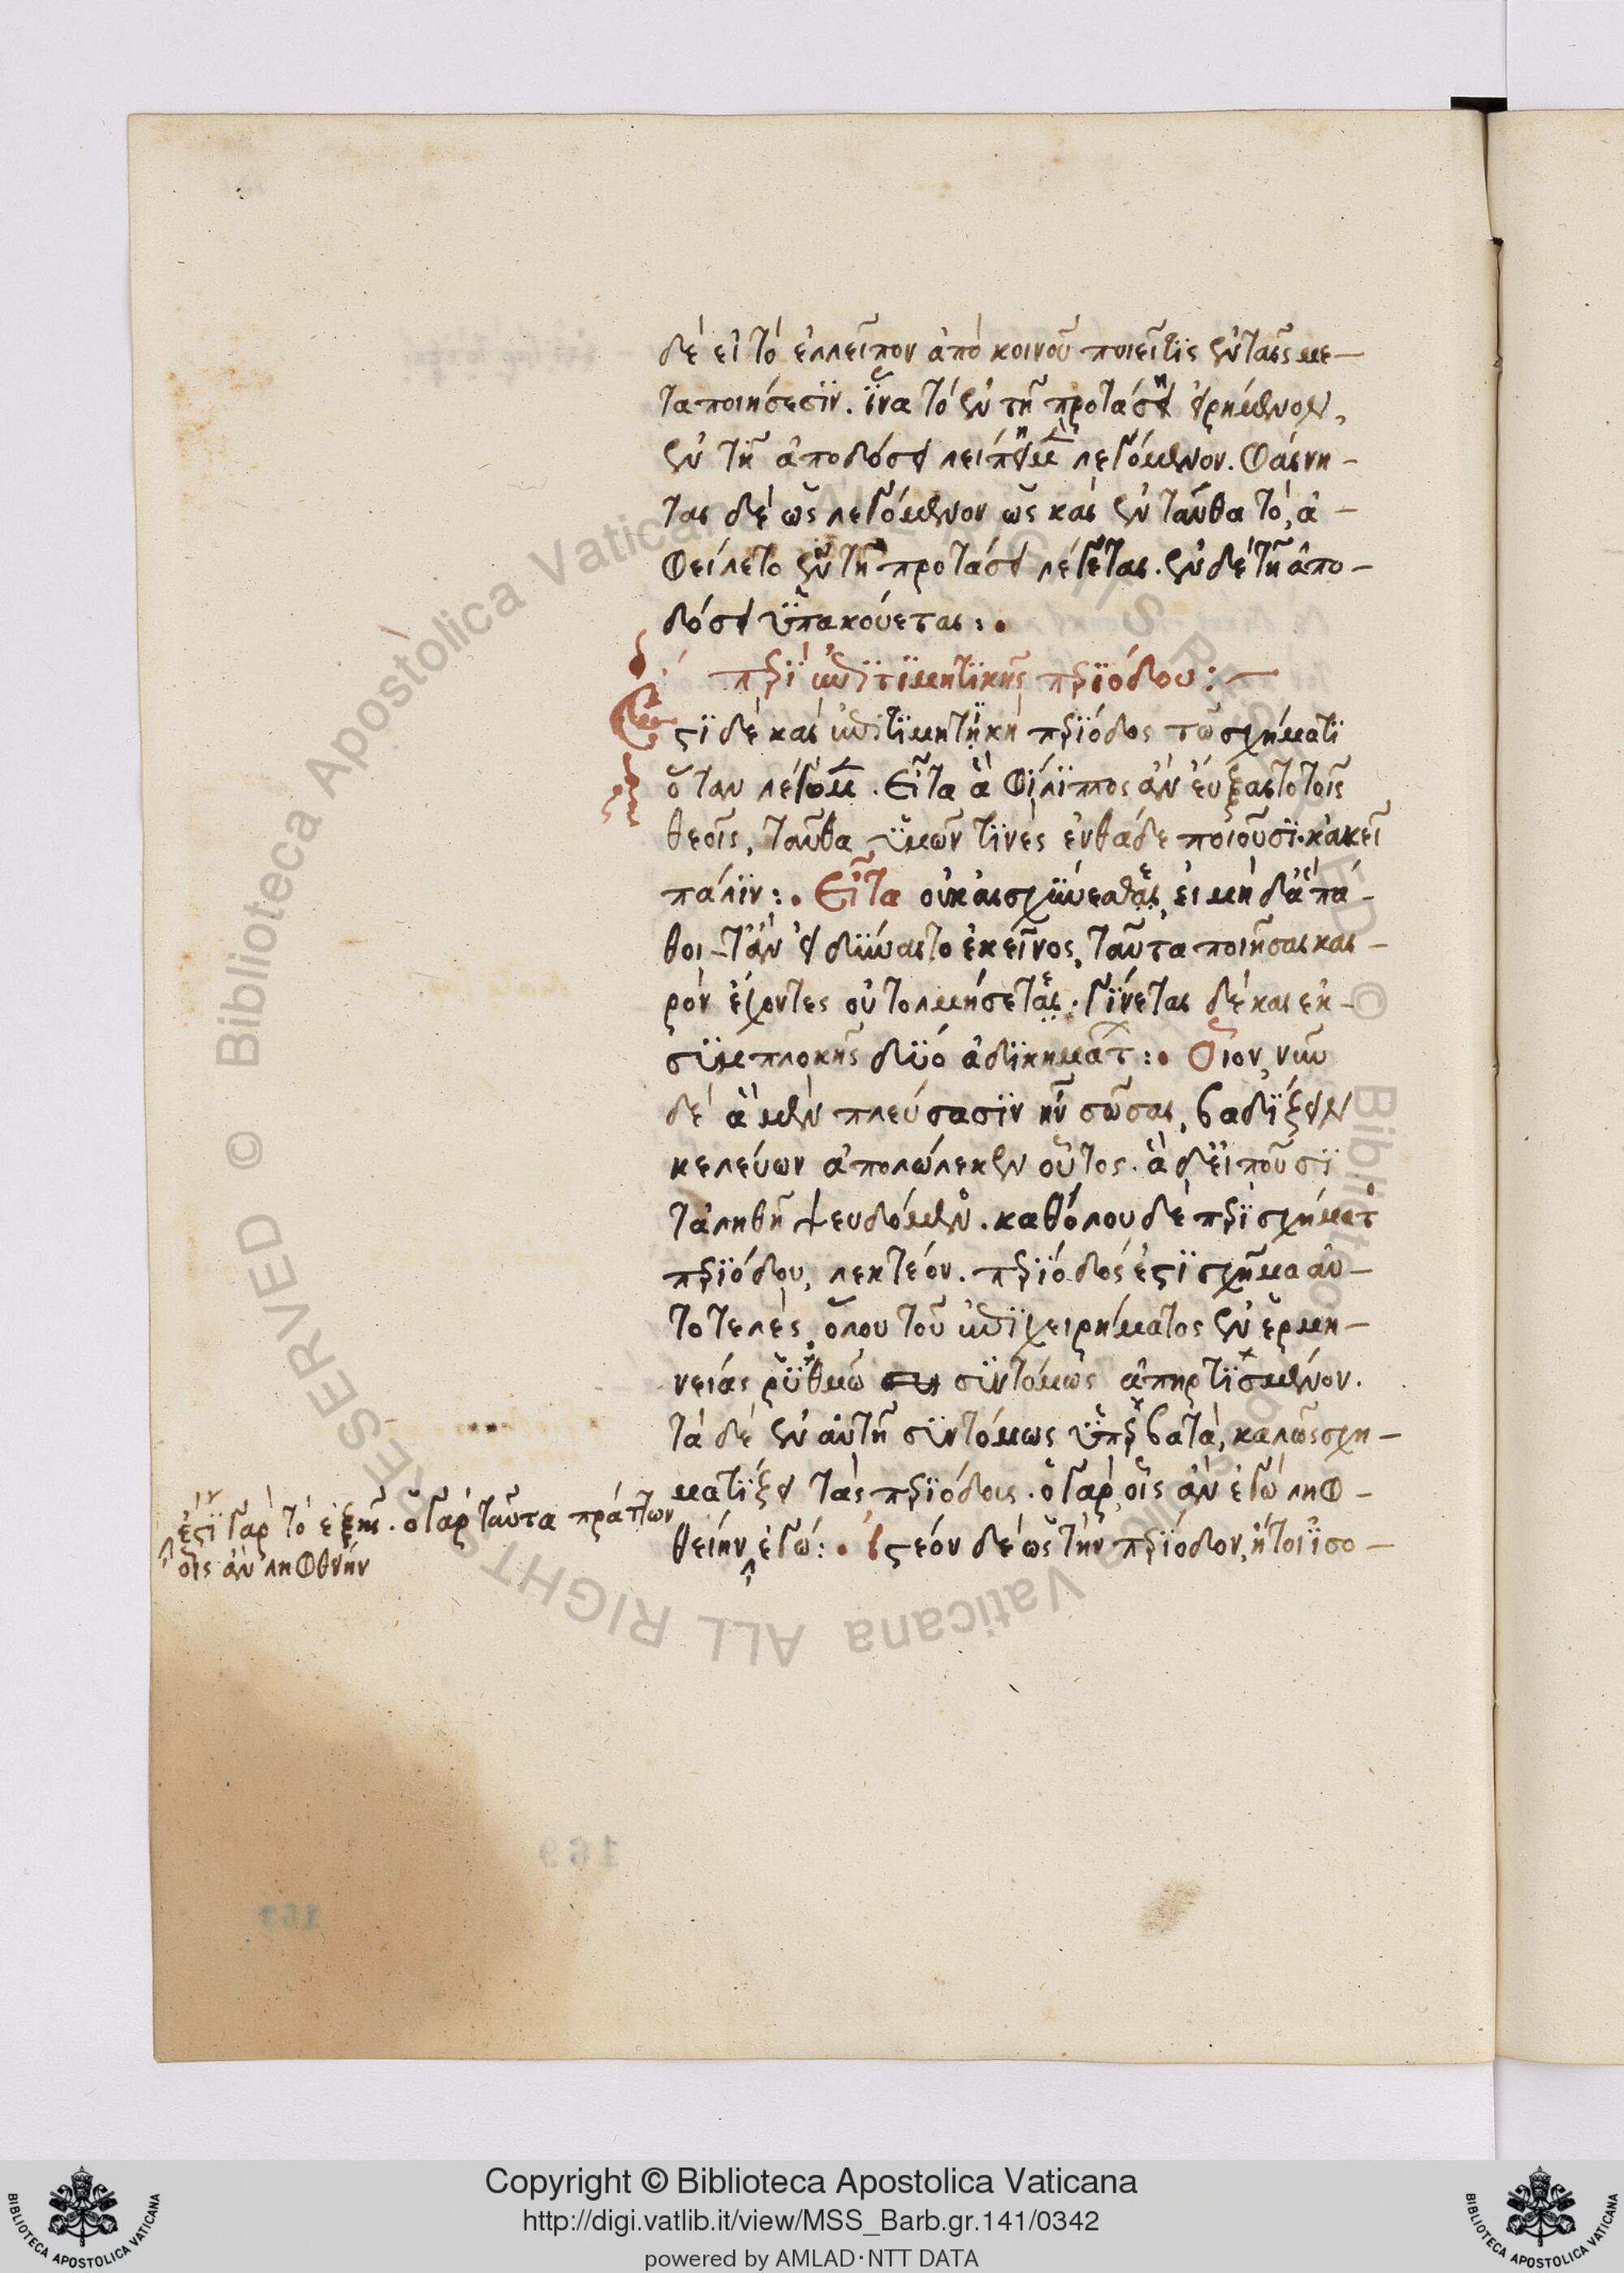 δὲ εἰ τὸ ἐλλεῖπον ἀπὸ κοινοῦ ποιεῖτις ἐν ταῖς με-
ταποιήσεσϊν. ἵνα τὸ ἐν τῆ προτάσει εἰρημένον,
ἐν τῆ ἀποδόσει λείπει μὲν λεγόμενον. φαίνη-
ται δὲ ὡς λεγόμενον ὡς καὶ ἐν ταῦθα τὸ, ἀ-
φείλετο ἐν τῆ προτάσει λέγεται. ἐν δὲ τῆ ἀπο-
δόσει ὑπακούεται:.
δ περϊ ἐπϊτϊμητϊκῆς περϊόδου:-
ςϊ δὲ καὶ ἐπιτϊμητϊκὴ περϊόδος τῶ σχήματϊ
ὅταν λέγωμεν. Εἶτα ἃ Φίλϊππος ἂν εὔξαιτο τοῖς
θεοῖς, ταῦθα ὑμῶν τϊνὲς ἐνθάδε ποιοῦσϊ. κἀκεῖ
πάλϊν:. Εἶτα οὐκ αἰσχϋνεσθαι, εἰ μὴ δ' ἃ πά-
θοι τ' ἂν εἰ δϋναιτο ἐκεῖνος, ταῦτα ποιῆσαι και-
ρὸν ἔχοντες οὐ τολμήσεται. γϊνεται δὲ καὶ ἐκ
σϋμπλοκῆς δϋο ἀδϊκημάτ:. Οἷον, νῦν
δὲ ἃ μὲν πλεύσασϊν ἦν σῶσαι, βαδϊζειν
κελεύων ἀπολώλεκεν οὗτος. ἃ δ' εἰποῦσϊ
τἀληθῆ ψευδόμενος. καθόλου δὲ περϊ σχήματ
περϊόδου, λεκτέον. περϊόδός ἐςϊ σχῆμα αὐ-
τοτελὲς, ὅλου τοῦ ἐπϊχειρήματος ἐν ἑρμη-
νείας ρϋθμῶ σϋντόμως ἀπηρτϊσμένον.
τὰ δὲ ἐν αὐτῆ σϋντόμως ὑπερβατὰ, καλῶς σχη-
ματϊζει τὰς περϊόδους. ὁ γὰρ οἷς ἂν ἐγὼ ληφ-
θείην ἐγώ:. ἰςέον δὲ ὡς τὴν περϊοδον, ἤτοι ἰσο-
ἐςϊ γὰρ τὸ ἑξῆς. ὁ γὰρ ταῦτα πράττων
οἷς ἂν ληφθείην
169
Copyright © Biblioteca Apostolica Vaticana
http://digi.vatlib.it/view/MSS_Barb.gr.141/0342
powered by AMLAD·NTT DATA
BIBLIOTECA APOSTOLICA VATICANA
BIBLIOTECA APOSTOLICA VATICANA